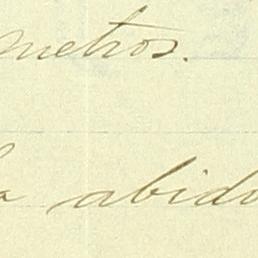 metros.
a abido